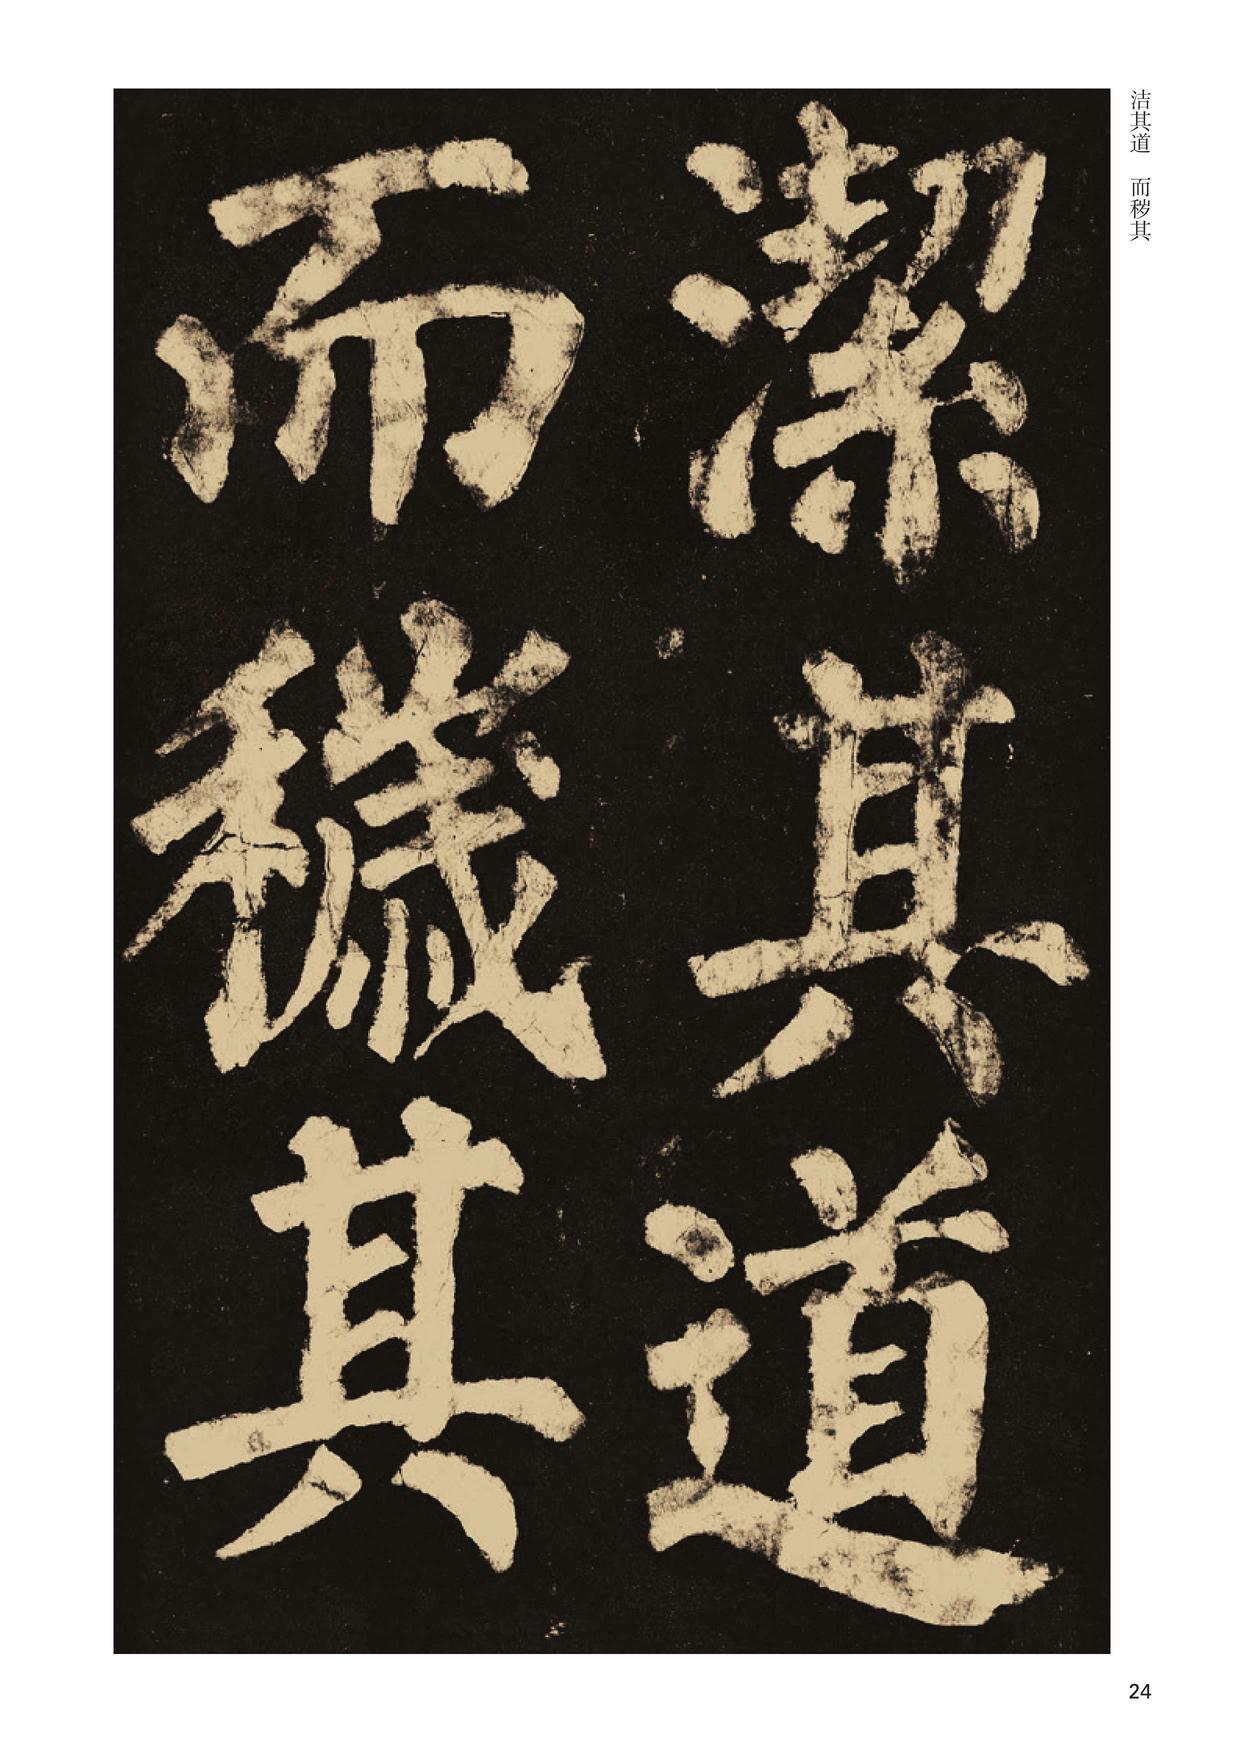 潔其道
而穢其
洁其道 而秽其
24